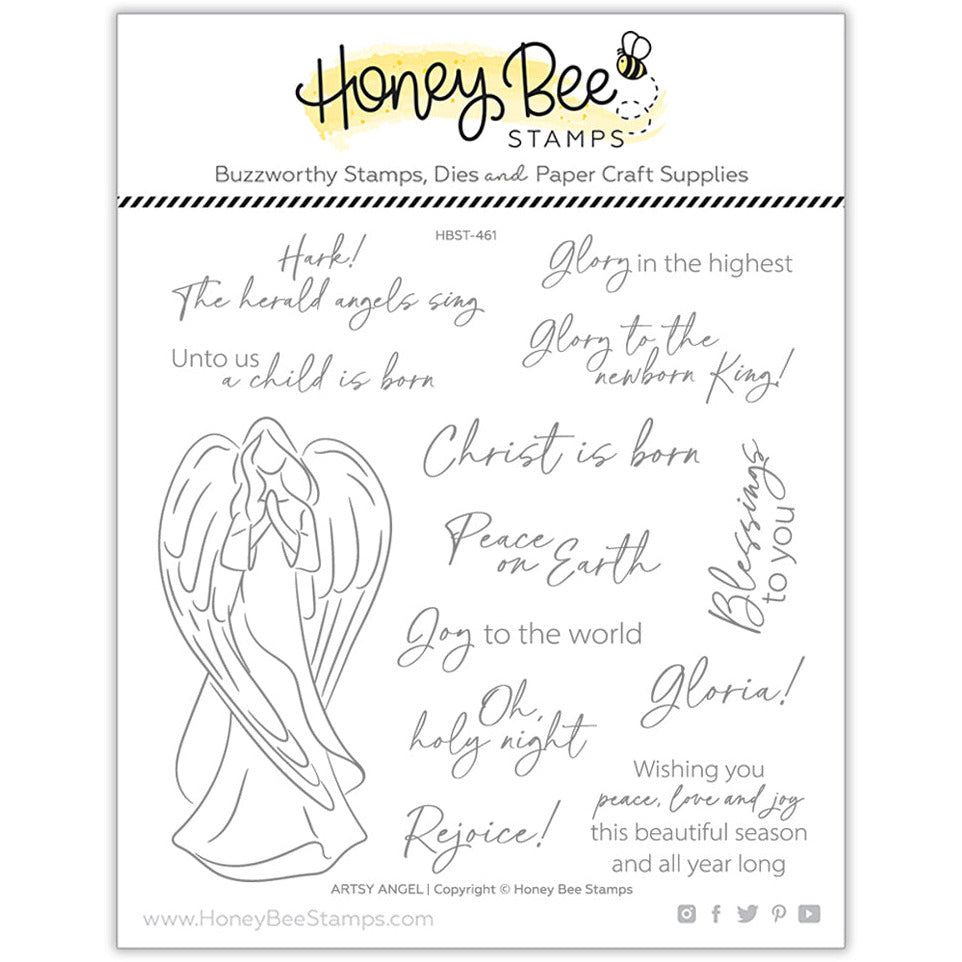 Honey Bee
STAMPS
Buzzworthy Stamps, Dies and Paper Craft Supplies
HBST-461
Hark!
The herald angels sing
Glory in the highest
Unto us
a child is born
Glory to the
newborn King!
Christ is born
Peace
on Earth
Blessings
to you
Joy to the world
Oh,
holy night
Gloria!
Rejoice!
Wishing you
peace, love and joy
this beautiful season
and all year long
ARTSY ANGEL | Copyright © Honey Bee Stamps
www.HoneyBeeStamps.com